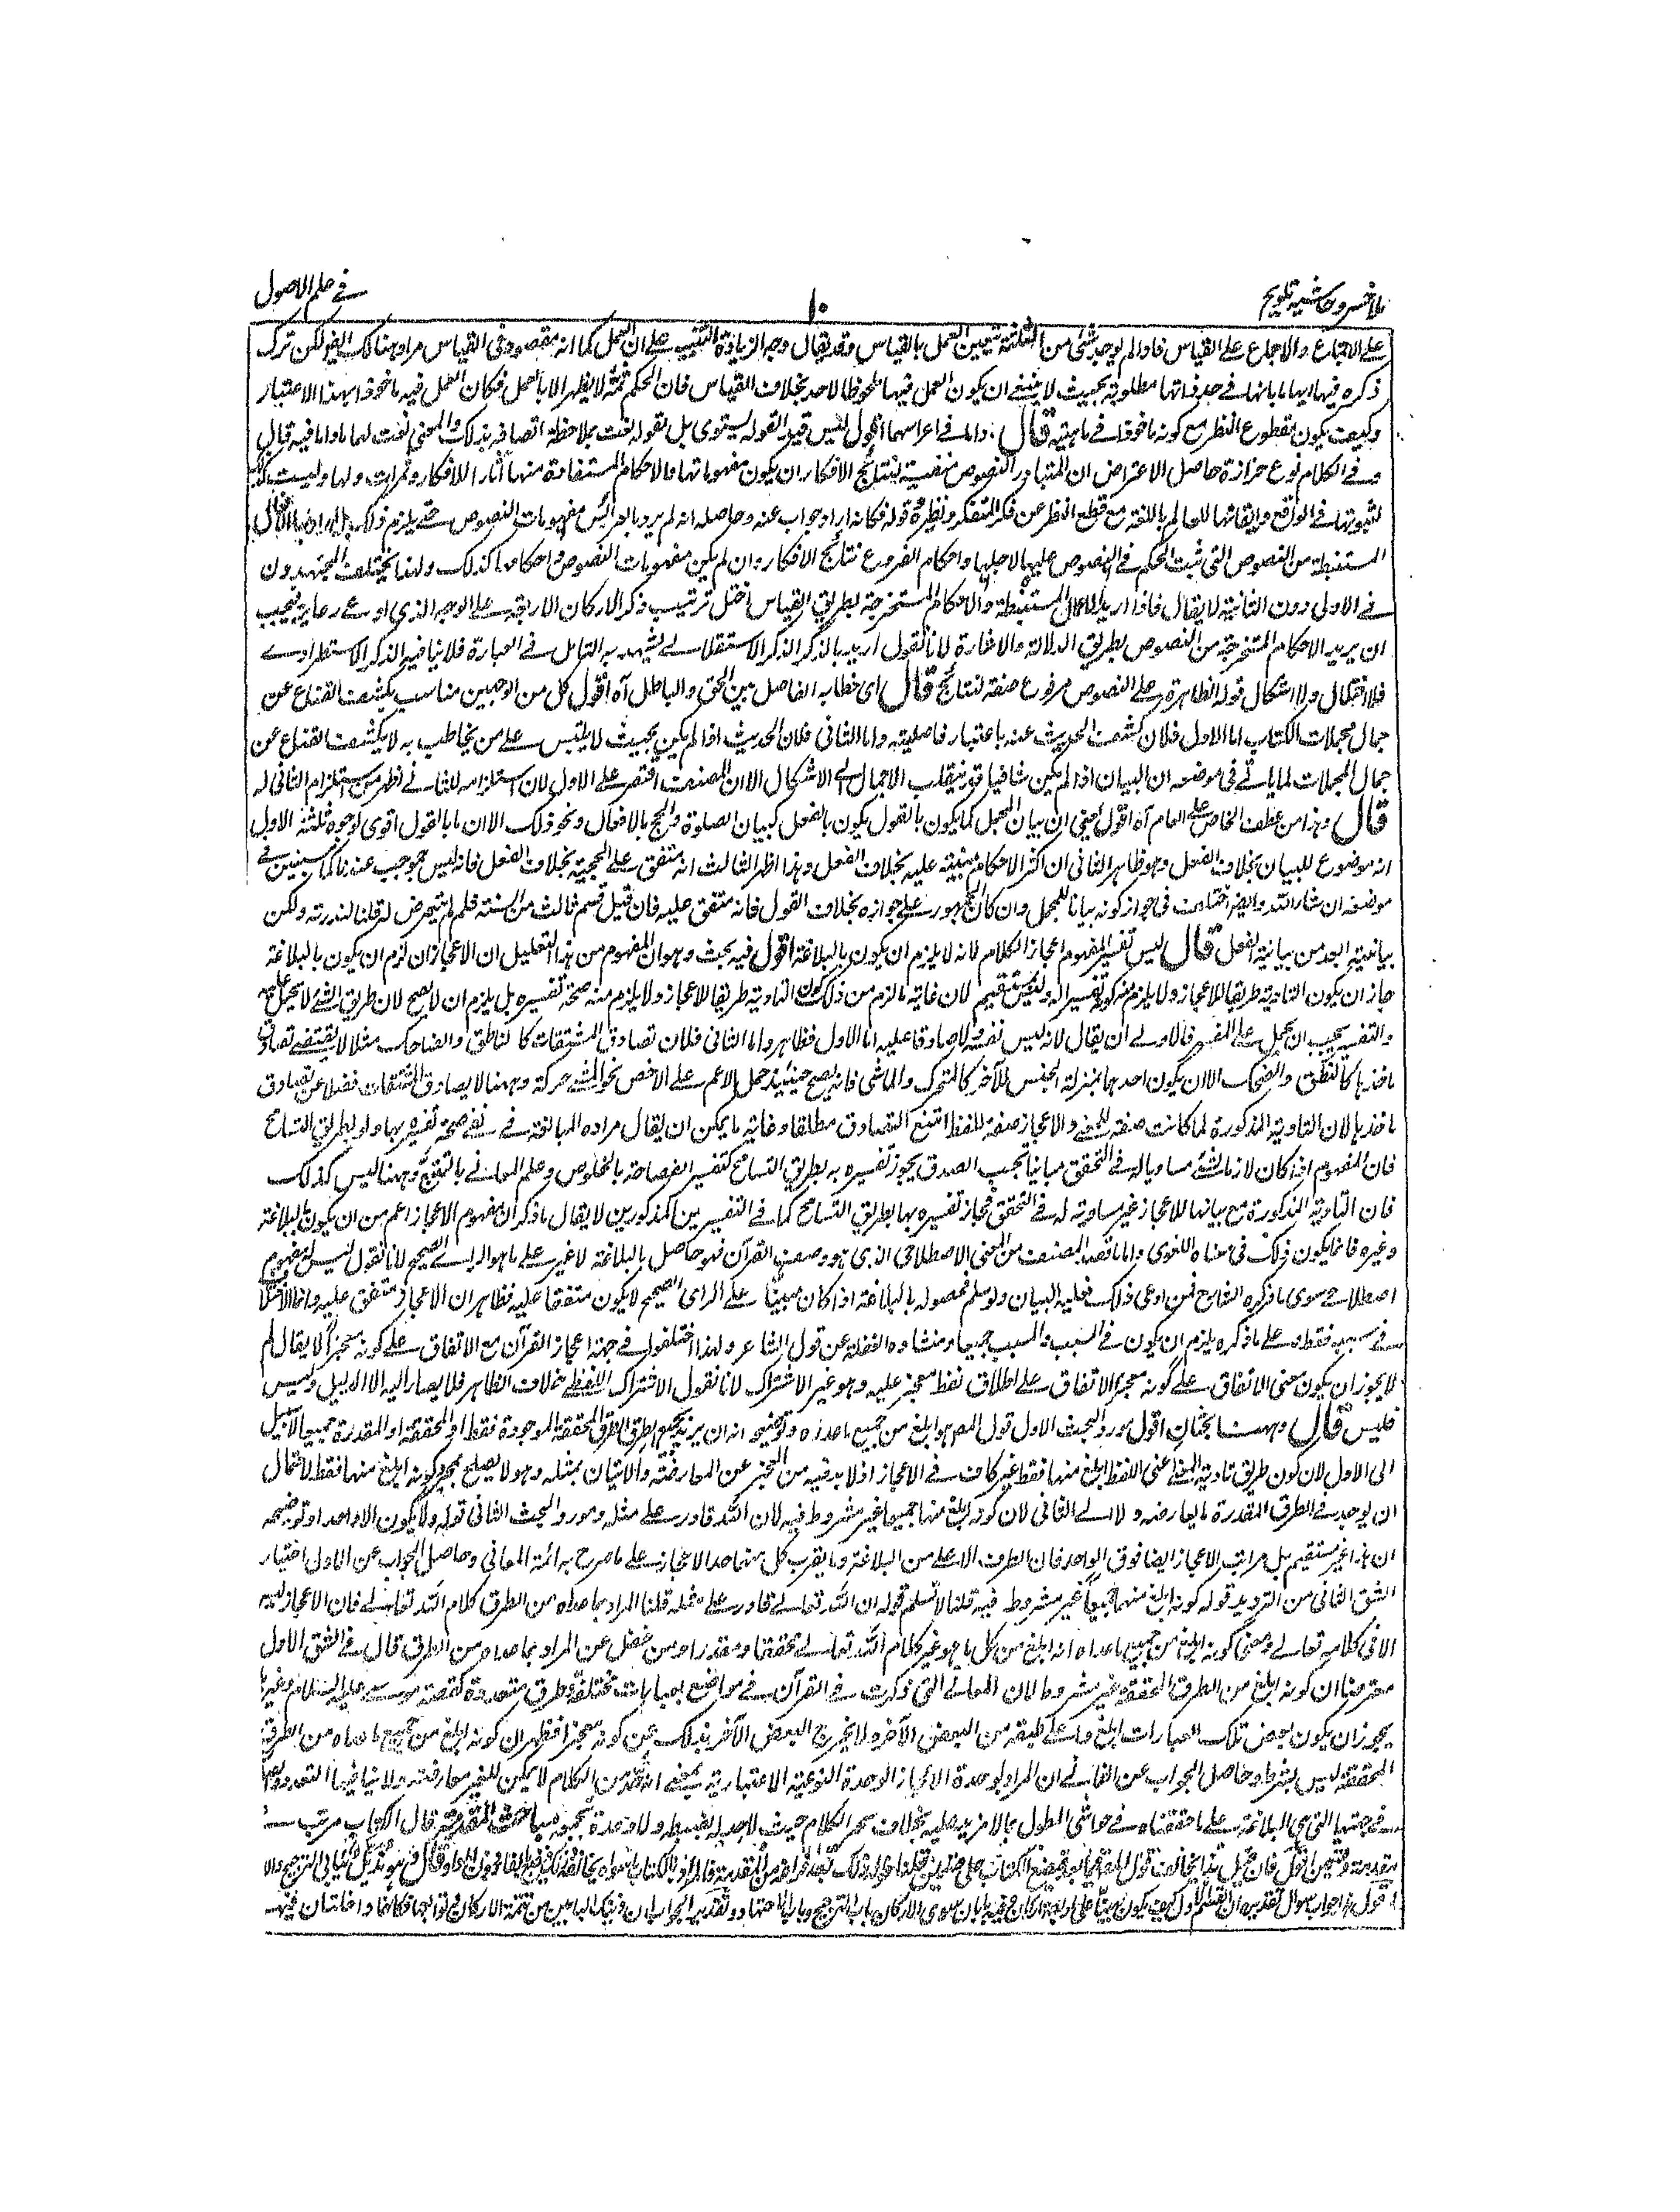 ملا خسرو حاشیه تلویح
١٠
فی علم الاصول
علی الاجماع والاجماع علی القیاس فاذا لم یوجد شئ من الثلثة تتعین العمل بالقیاس وقد یقال وجه الزیادة التنبیه علی ان العمل کما انه مقصود فی القیاس مراد هناک ایضا لکن ترک
ذکره فیها ایماء بانها فی حد ذاتها مطلوبة بحیث لا ینبغی ان یکون العمل فیها ملحوظا لاحد بخلاف القیاس فان الحکم ثمة لا یظهر الا بالعمل فکان العمل فیه ماخوذا بهذا الاعتبار
وکیف یکون مقطوع النظر مع کونه ماخوذا فی ماهیته قال واما فی اعراسها اقول لیس قید القوله لیستوی بل لقوله نعت بملاحظة اتصافه بذلک والمعنی نعت لها
وفی الکلام نوع حزازة حاصل الاعتراض ان المتبادر النصوص منصبة لنتائج الافکار ان یکون مفهوماتها فالاحکام المستفادة منها آثارا للافکار وثمرات لها ولیست کذلک
لثبوتها فی الواقع وایقانها للعالم باللغة مع قطع النظر عن فکر المتفکر ونظره قوله فکانه اراد جواب عنه وحاصله انه لم یرد بالعرائس مفهومات النصوص حتی یلزم ذلک بل
المستنبطة من النصوص التی ثبت الحکم فی المنصوص علیها لاجلها واحکام الفروع نتائج الافکار وان لم یکن مفهومات النصوص واحکامها کذلک ولهذا یختلف المجتهدون
فی الاولی دون الثانیة لا یقال فاذا ارید العلل المستنبطة والاحکام المستخرجة بطریق القیاس اختل ترتیب ذکر الارکان الاربعة علی الوجه الذی ادعی رعایته فیجب
ان یرید الاحکام المستخرجة من النصوص بطریق الدلالة والاشارة لانا نقول ارید بالذکر الذکر الاستقلالی یشهد به التامل فی العبارة فلا ینافیه الذکر الاستطرادی
فلا اختلال ولا اشکال قوله الظاهرة علی النصوص مرفوع صفة لنتائج قال ای خطابه الفاصل بین الحق والباطل آه اقول کل من الوجهین مناسب بکشف القناع عن
جمال مجملات الکتاب اما الاول فلان کشفت الحدیث عنه باعتبار فاصلیته واما الثانی فلان الحدیث اذا لم یکن بحیث لا یلتبس علی من یخاطب به لا یکشف القناع عن
جمال المجملات لما یاتی فی موضعه ان البیان اذا لم یکن شافیا قد ینقلب الاجمال الی الاشکال الا ان المصنف اقتصر علی الاول لان استلزامه للثانی اظهر من استلزام الثانی له
قال وهذا من عطف الخاص علی العام آه اقول یعنی ان بیان المجمل کما یکون بالقول یکون بالفعل کبیان الصلوة والحج بالافعال ونحو ذلک الا ان ما بالقول اقوی لوجوه ثلثة الاول
انه موضوع للبیان بخلاف الفعل وهو ظاهر الثانی ان اکثر الاحکام مبنیة علیه بخلاف الفعل وهذا اظهر الثالث انه متفق علی الحجیة بخلاف الفعل فانه لیس بموجب عندنا کما سیبین فی
موضعه ان شاء الله وایضا اختلفت فی جواز کونه بیانا للمجمل وان کان الجمهور علی جوازه بخلاف القول فانه متفق علیه فان قیل قسم ثالث من السنة فلم لم یتعرض له قلنا لندرته ولکن
بیانیته ابعد من بیانیة الفعل قال لیس تفسیرا لمفهوم اعجاز الکلام لانه لا یلزم ان یکون بالبلاغة اقول فیه بحث وهو ان المفهوم من هذا التعلیل ان الاعجاز ان لزم ان یکون بالبلاغة
جاز ان یکون التادیة طریقا للاعجاز ولا یلزم من کونه تفسیرا له ولیس بمستقیم لان غایة ما لزم من ذلک کون التادیة طریقا للاعجاز ولا یلزم منه صحة تفسیره بل یلزم ان لا یصح لان طریق الشئ لا یحمل علیه
والتفسیر یجب ان یحمل علی المفسر فالاولی ان یقال لانه لیس نفسه ولا صادقا علیه اما الاول فظاهر واما الثانی فلان تصادق المشتقات کالناطق والضاحک مثلا لا یقتضی تصادق
ماخذها کالنطق والضحک الا ان یکون احدهما بمنزلة الجنس للآخر کالمتحرک والماشی فانه یصح حینئذ حمل الاعم علی الاخص نحو المشی حرکة وههنا لا یصادق المشتقات فضلا عن تصادق
ماخذها لان التادیة المذکورة لما کانت صفة للمعنی والاعجاز صفة للفظ امتنع التصادق مطلقا وغایة ما یمکن ان یقال مراده المبالغة فی نفی صحة تفسیره بها ولو بطریق التسامح
فان المفهوم اذا کان لازما لشئ مساویا له فی التحقق مباینا بحسب الصدق یجوز تفسیره به بطریق التسامح کتفسیر الفصاحة بالخلوص وعلم المعانی بالتتبع وههنا لیس کذلک
فان التادیة المذکورة مع بیانها للاعجاز غیر مساویة له فی التحقق فجاز تفسیره بها بطریق التسامح کما فی التفسیرین المذکورین لا یقال ما ذکر ان مفهوم الاعجاز اعم من ان یکون بالبلاغة
وغیره فانما یکون ذلک فی معناه اللغوی واما ما قصد المصنف من المعنی الاصطلاحی الذی هو وصف القرآن فهو حاصل بالبلاغة لا غیر علی ما هو الرای الصحیح لانا نقول لیس له مفهوم
اصطلاحی سوی ما ذکره الشارح فمن ادعی ذلک فعلیه البیان ولو سلم فحصوله بالبلاغة اذا کان مبینا علی الرای الصحیح لا یکون متفقا علیه فظاهر ان الاعجاز متفق علیه وانما الاختلاف
فی سببه فقط وعلی ما ذکره یلزم ان یکون فی السبب والمسبب جمیعا ومنشاؤه الغفلة عن قول الشاعر ولهذا اختلفوا فی جهة اعجاز القرآن مع الاتفاق علی کونه معجزا لا یقال لم
لا یجوز ان یکون معنی الاتفاق علی کونه معجزا الاتفاق علی اطلاق لفظ معجز علیه وهو غیر الاشتراک لانا نقول الاشتراک اللفظی خلاف الظاهر فلا یصار الیه الا لدلیل ولیس
فلیس قال وههنا بحثان اقول مورد البحث الاول قول المصـ هو ابلغ من جمیع ما عداه وتوضیحه انه ان یرید بجمیع الطرق الطرق المحققة الموجودة فقط او المحققة او المقدرة جمیعا لا سبیل
الی الاول لان کون طریق تادیة المعنی عنی اللفظ ابلغ منها فقط غیر کاف فی الاعجاز اذ لا بد فیه من العجز عن المعارضة والاتیان بمثله وهو لا یصلح بمجرد کونه ابلغ منها فقط لاحتمال
ان یوجد فی الطرق المقدرة ما یعارضه ولا الی الثانی لان کونه ابلغ منها جمیعا غیر مشروط فیه لان الله قادر علی مثله ومورد البحث الثانی قوله ولا یکون الا واحدا وتوضیحه
ان هذا غیر مستقیم بل مراتب الاعجاز ایضا فوق الواحد فان الطرف الاعلی من البلاغة وما یقرب کل منهما حد الاعجاز علی ما صرح به ائمة المعانی وحاصل الجواب عن الاول اختیار
الشق الثانی من التردید قوله کونه ابلغ منهما جمیعا غیر مشروط فیه قلنا لا نسلم قوله ان الله تعالی قادر علی مثله قلنا المراد بما عداه من الطرق کلام الله تعالی فان الاعجاز لیس
الا فی کلامه تعالی ومعنی کونه ابلغ من جمیع ما عداه انه ابلغ من کل ما هو غیر کلام الله تعالی محققا ومقدرا ومن غفل عن المراد بما عداه من الطرق قال فی الشق الاول
معترضا ان کونه ابلغ من الطرق المحققة غیر مشروط لان المعانی التی ذکرت فی القرآن فی مواضع بعبارات مختلفة وطرق متعددة کقصة موسی علیه السلام وغیرها
یجوز ان یکون بعض تلک العبارات ابلغ واعلی طبقة من البعض الآخر ولا یخرج البعض الآخر بذلک عن کونه معجزا فظهر ان کونه ابلغ من جمیع ما عداه من الطرق
المحققة لیس بشرط وحاصل الجواب عن الثانی ان المراد بوحدة الاعجاز الوحدة النوعیة الاعتباریة بمعنی انه حد من الکلام لا یمکن للغیر معارضته ولا ینافیها التعدد
فی جهتها التی هی البلاغة علی ما حققناه فی حواشی المطول بما لا مزید علیه بخلاف سحر الکلام حیث لا حد له یضبطه ولا وحدة تجمعه قال الکتاب مرتب